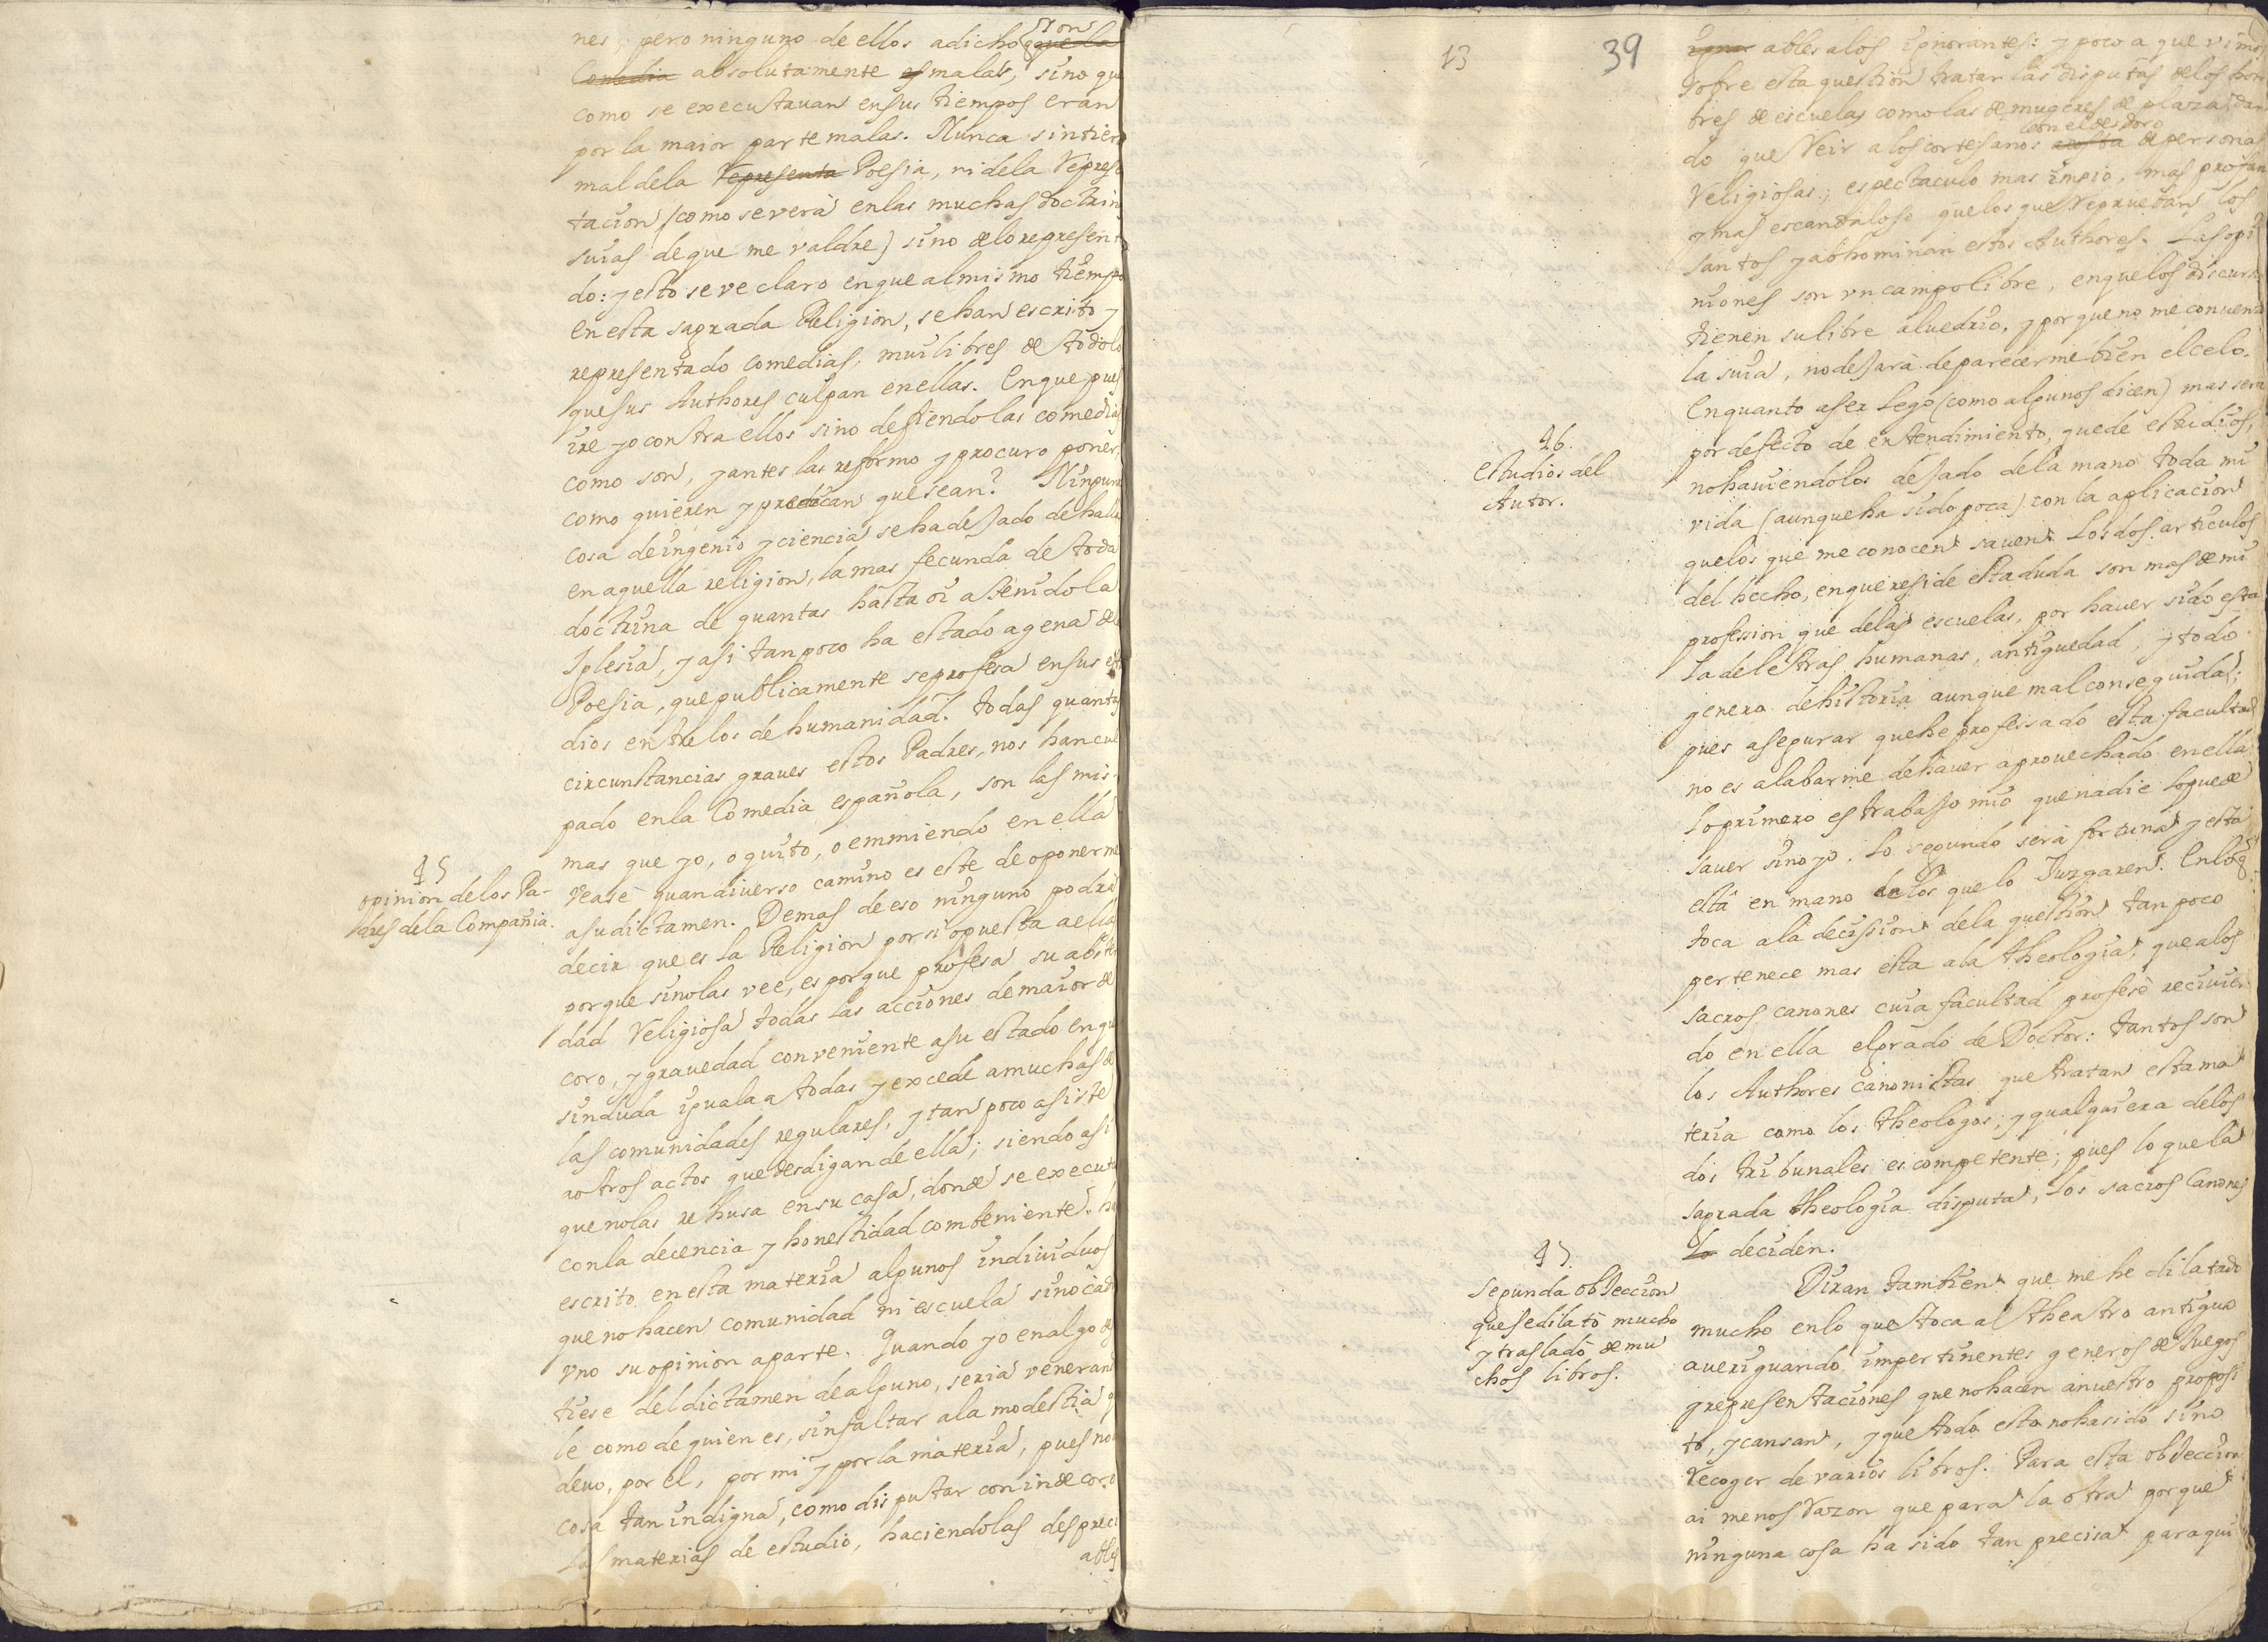 nes, pero ninguno de ellos a dicho son
q̃ que la
Comedia absolutamente es malas, sino que
como se executavan en sus tiempos eran
por la maior parte malas. Nunca sintier
mal dela Representa Poesia, ni dela Represe
tacion (como severà enlas muchas doctrin
suias de que me valdre) sino delo represent
do: y esto se ve claro en que al mismo tiempo
en esta sagrada Religion, se han escrito y
representado comedias, mui libres de todo lo
que sus Authores culpan en ellas. En que pues
ire yo contra ellos sino defiendo las comedias
como son, y antes las reformo y procuro poner,
como quieren y predican que sean? Ninguna
cosa de ingenio y ciencia se ha dejado de halla
en aquella religion, la mas fecunda de toda
doctrina de quantas hasta oi a tenido la
Iglesia, y asi tanpoco ha estado agena de
Poesia, que publicamente se profesa en sus est
dios entre los de humanidad. Todas quantas
circunstancias graves estos Padres, nos han cul
pado en la Comedia española, son las mis
mas que yo, o quito, o emmiendo en ella
45
opinion de los Pa-
dres dela Compañia.
Vease quan diverso camino es este de oponerme
a su dictamen. Demas de eso ninguno podra
decir que es la Religion por si opuesta a ella
porque sino las vee, es porque profesa su abste
dad Religiosa todas las acciones de maior de
coro, y gravedad conveniente a su estado en qu
sin duda iguala a todas y excede a muchas de
las comunidades regulares, y tan poco asiste
a otros actos que desdigan de ella; siendo asi
que no las rehusa en su casa, donde se executa
con la decencia y honestidad combeniente. ha
escrito en esta materia algunos individuos
que no hacen comunidad ni escuela sino cad
vno su opinion aparte. Quando yo en algo de
tiese del dictamen de alguno, seria veneran
le como de quien es, sin faltar ala modestia q
devo, por el, por mi y por la materia, pues no
cosa tan indigna, como disputar con indecoro
las materias de estudio, haciendolas despreci
ables
13
39
igno ables alos ignorantes: y poco a que vimos
sobre esta question tratar las disputas de los hom
bres de escuelas como las de mugeres de plaza dan
do que Reir a los cortesanos a costa con el desdoro de personas
Religiosas; espectaculo mas impio, mas profan
y mas escandaloso que los que reprueban los
santos y abhominan estos Authores. Las opi
niones son vn campo libre, en que los discurs
tienen su libre alvedrio, y por que no me convenza
la suia, no dejarà de parecerme bien el celo.
En quanto a ser Lego (como algunos dicen) mas sera
por defecto de entendimiento, que de estudios,
46.
Estudios del
Autor.
no haviendolos dejado dela mano toda mi
vida (aunque ha sido poca) con la aplicacion
que los que me conocen saven. Los dos articulos
del hecho, en que reside esta duda son mas de mi
profession que delas escuelas, por haver sido esta
la de letras humanas, antiguedad, y todo
genero de historia aunque mal conseguida;
pues asegurar que he professado esta facultad
no es alabarme de haver aprovechado en ella
lo primero es trabajo mio que nadie lo puede
saver sino yo. Lo segundo serà fortuna y esta
està en mano de los que lo Juzgaren. En lo q̃
toca ala decission dela question tan poco
pertenece mas esta ala theologia, que alos
sacros canones cuia facultad profesè recivien
do en ella el grado de Doctor: tantos son
los Authores canonistas que tratan esta ma
teria como los theologos; y qualquiera de los
dos tribunales es competente; pues lo que la
sagrada theologia disputa, los sacros Canones
lo deciden.
47.
segunda objeccion
que se dilatò mucho
y trasladò de mu
chos libros.
Diran tambien que me he dilatado
mucho en lo que toca al theatro antiguo
averiguando impertinentes generos de Juegos
y representaciones que no hacen a nuestro proposi
to, y cansan, y que todo esto no ha sido sino
recoger de varios libros. Para esta objeccion
ai menos razon que para la otra porque
ninguna cosa ha sido tan precisa para qui